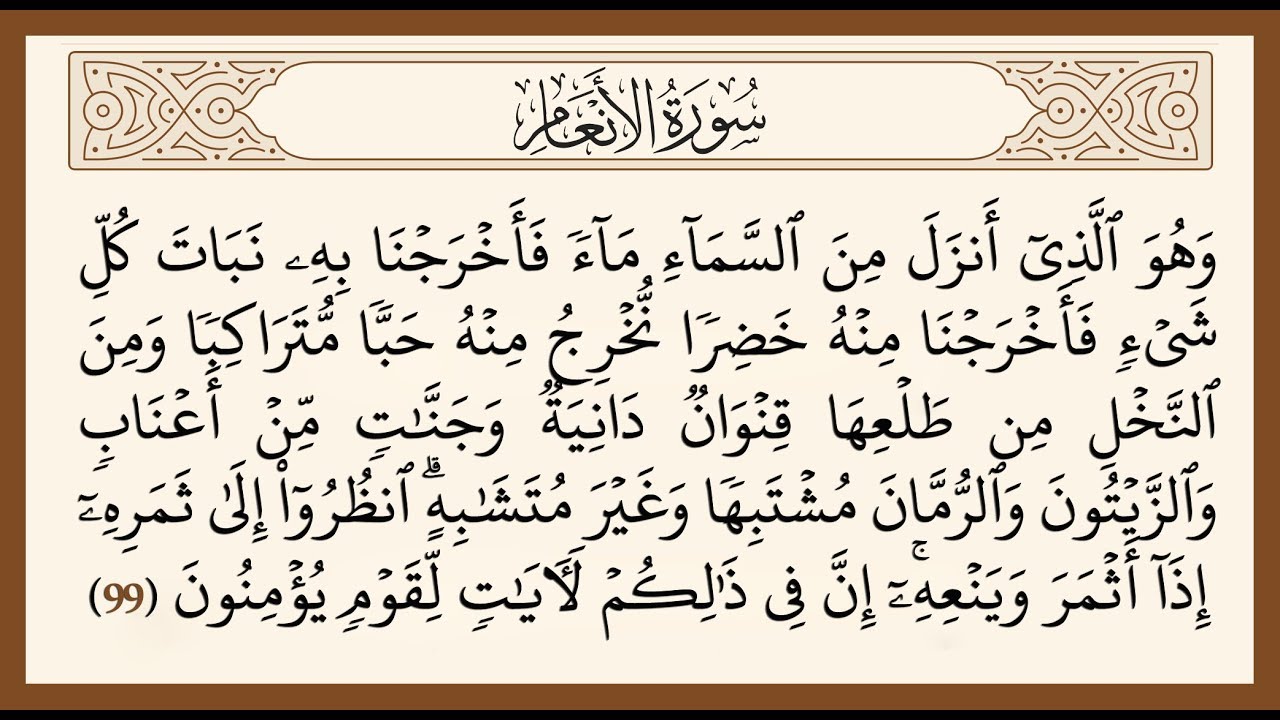 سُورَةُ الْأَنْعَامِ
وَهُوَ ٱلَّذِىٓ أَنزَلَ مِنَ ٱلسَّمَآءِ مَآءً فَأَخْرَجْنَا بِهِۦ نَبَاتَ كُلِّ
شَىْءٍ فَأَخْرَجْنَا مِنْهُ خَضِرًا نُّخْرِجُ مِنْهُ حَبًّا مُّتَرَاكِبًا وَمِنَ
ٱلنَّخْلِ مِن طَلْعِهَا قِنْوَانٌ دَانِيَةٌ وَجَنَّٰتٍ مِّنْ أَعْنَابٍ
وَٱلزَّيْتُونَ وَٱلرُّمَّانَ مُشْتَبِهًا وَغَيْرَ مُتَشَٰبِهٍ ۗ ٱنظُرُوٓا۟ إِلَىٰ ثَمَرِهِۦٓ
إِذَآ أَثْمَرَ وَيَنْعِهِۦٓ ۚ إِنَّ فِى ذَٰلِكُمْ لَـَٔايَٰتٍ لِّقَوْمٍ يُؤْمِنُونَ (99)